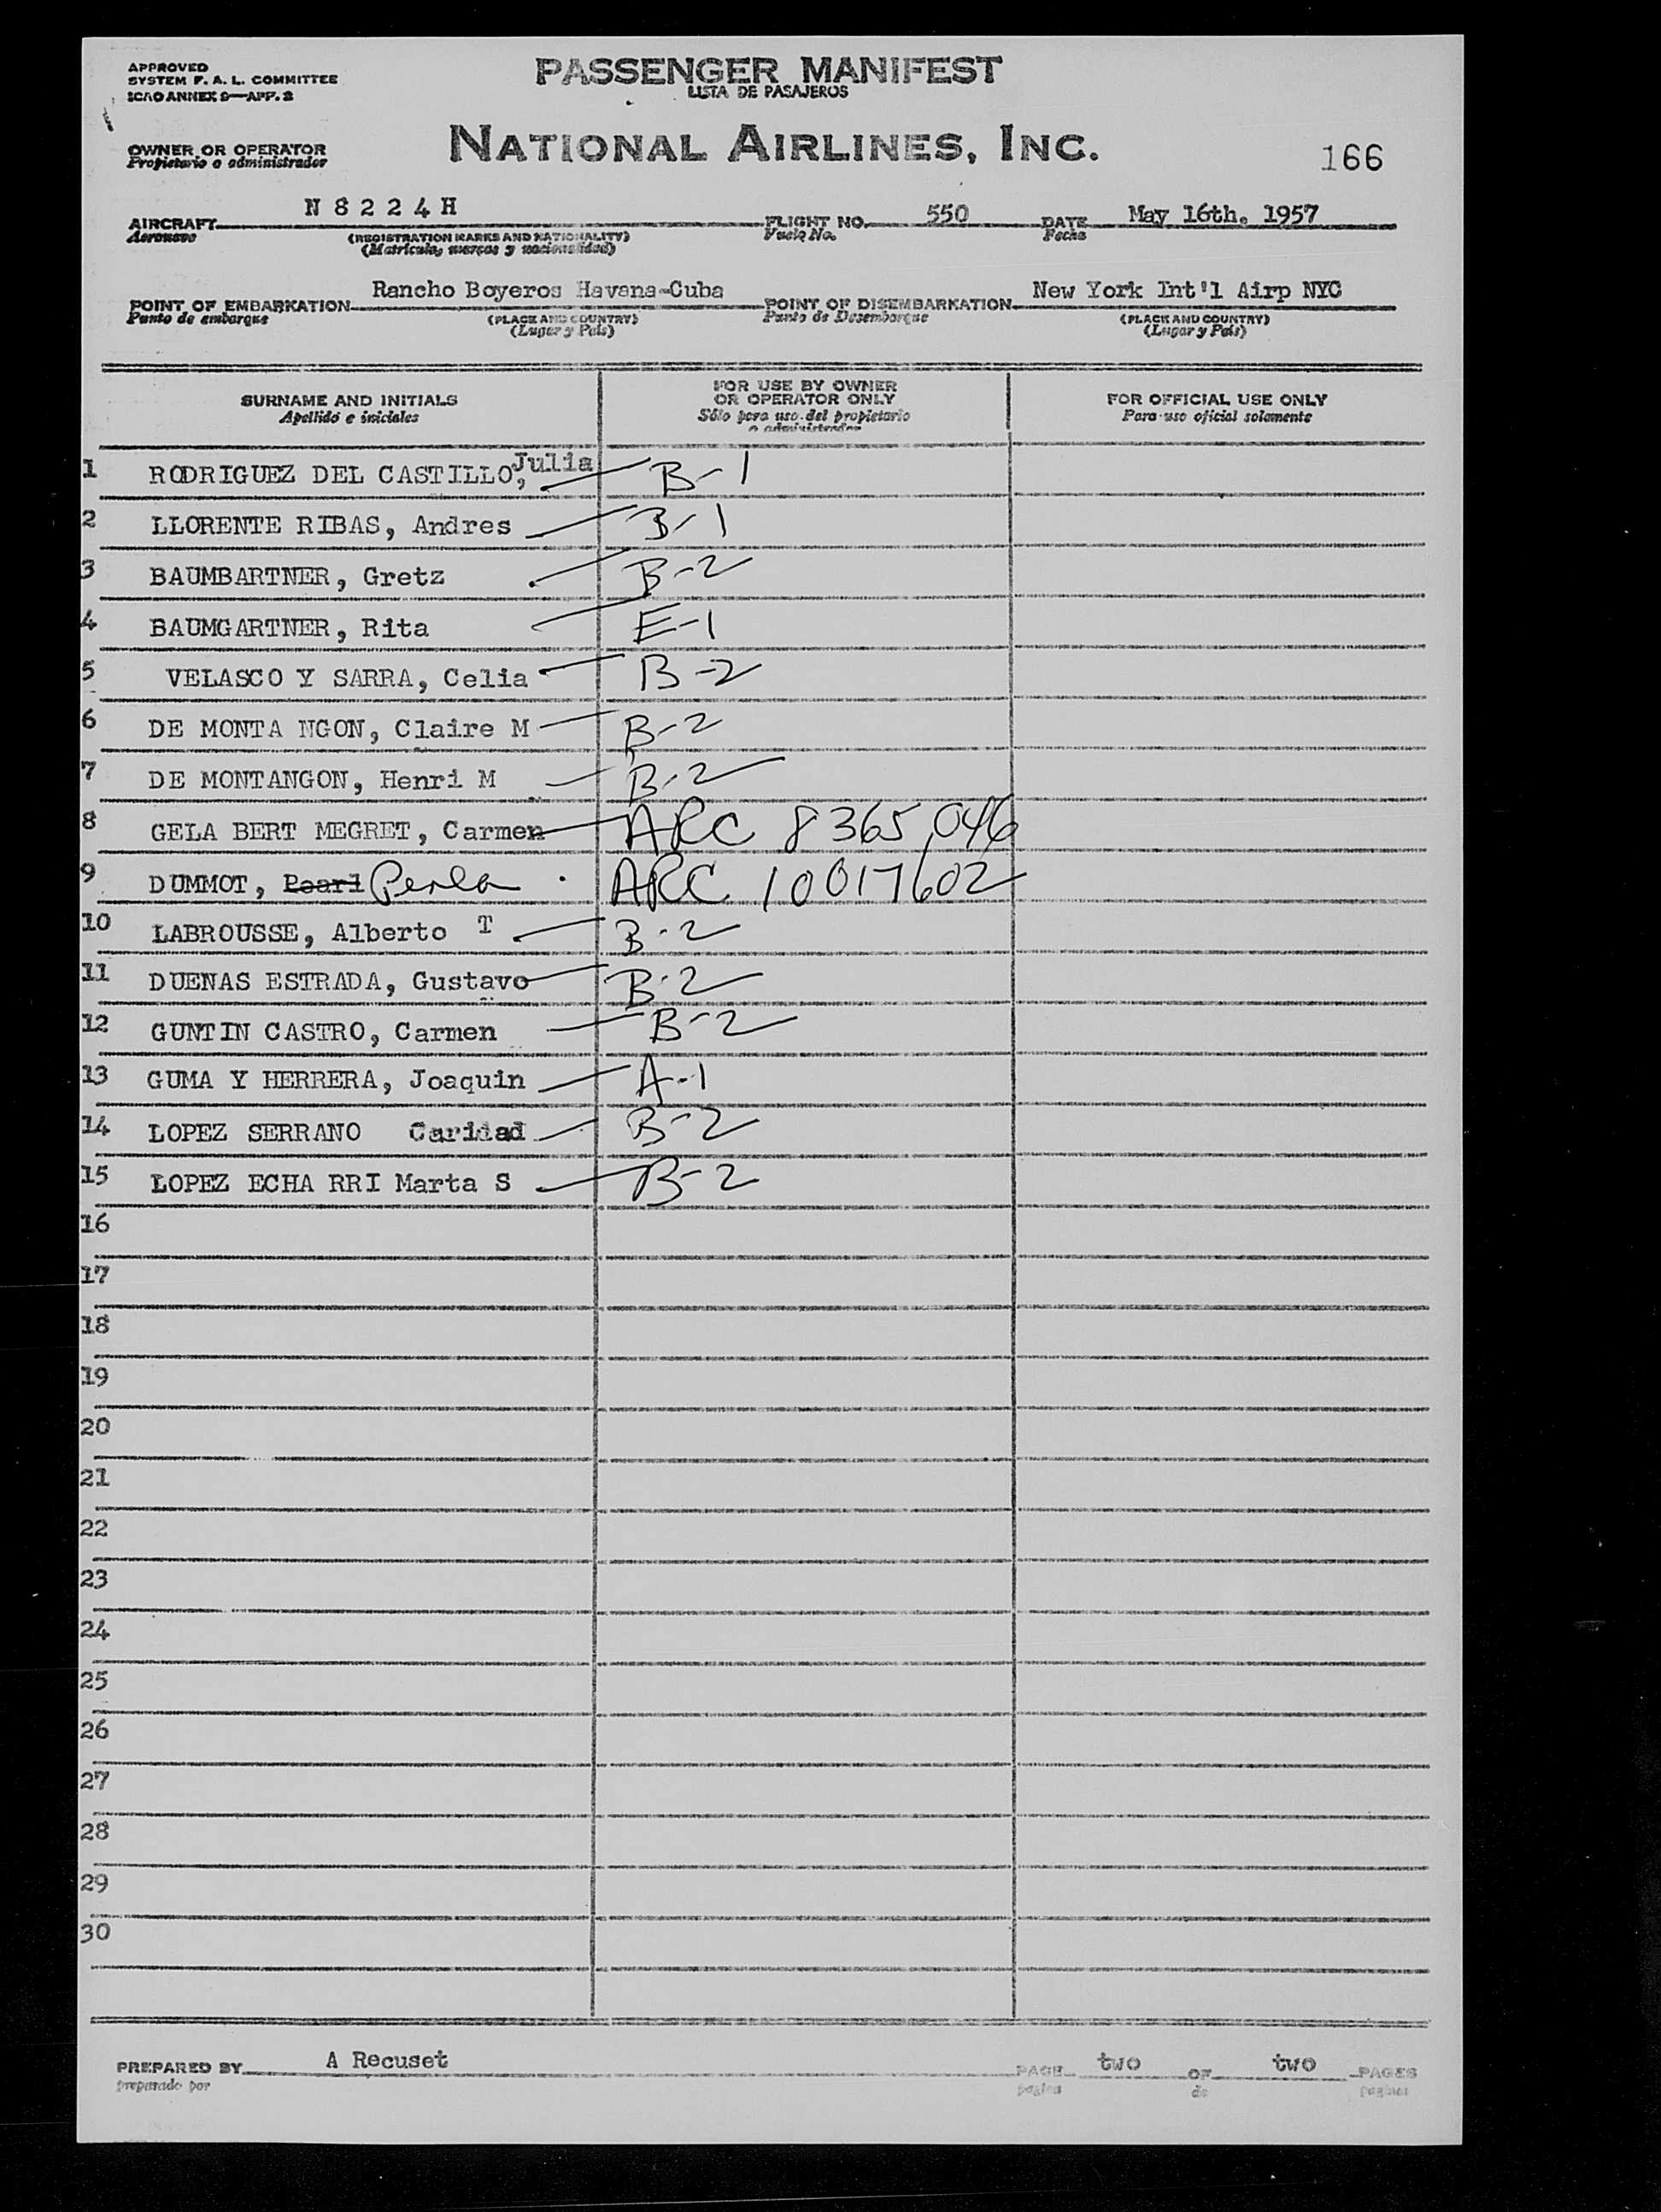 APPROVED
SYSTEM F. A. L. COMMITTEE
ICAO ANNEX 9—APP. 2
PASSENGER MANIFEST
LISTA DE PASAJEROS
OWNER OR OPERATOR
Propietario o administrador
NATIONAL AIRLINES, INC.
166
AIRCRAFT N 8 2 2 4 H FLIGHT NO. 550 DATE May 16th. 1957
Aeronave (REGISTRATION MARKS AND NATIONALITY) Vuelo No. Fecha
(Matricula, marcas y nacionalidad)
POINT OF EMBARKATION Rancho Boyeros Havana-Cuba POINT OF DISEMBARKATION New York Int'l Airp NYC
Punto de embarque (PLACE AND COUNTRY) Punto de Desembarque (PLACE AND COUNTRY)
(Lugar y País) (Lugar y País)
SURNAME AND INITIALS FOR USE BY OWNER OR OPERATOR ONLY FOR OFFICIAL USE ONLY
Apellido e iniciales Sólo para uso del propietario o administrador Para uso oficial solamente
1 RODRIGUEZ DEL CASTILLO, Julia B-1
2 LLORENTE RIBAS, Andres B-1
3 BAUMBARTNER, Gretz B-2
4 BAUMGARTNER, Rita E-1
5 VELASCO Y SARRA, Celia B-2
6 DE MONTA NGON, Claire M B-2
7 DE MONTANGON, Henri M B-2
8 GELA BERT MEGRET, Carmen ARC 8365046
9 DUMMOT, Pearl Perla ARC 10017602
10 LABROUSSE, Alberto T B-2
11 DUENAS ESTRADA, Gustavo B-2
12 GUNTIN CASTRO, Carmen B-2
13 GUMA Y HERRERA, Joaquin A-1
14 LOPEZ SERRANO Caridad B-2
15 LOPEZ ECHA RRI Marta S B-2
16
17
18
19
20
21
22
23
24
25
26
27
28
29
30
PREPARED BY A Recuset PAGE two OF two PAGES
preparado por pagina de paginas